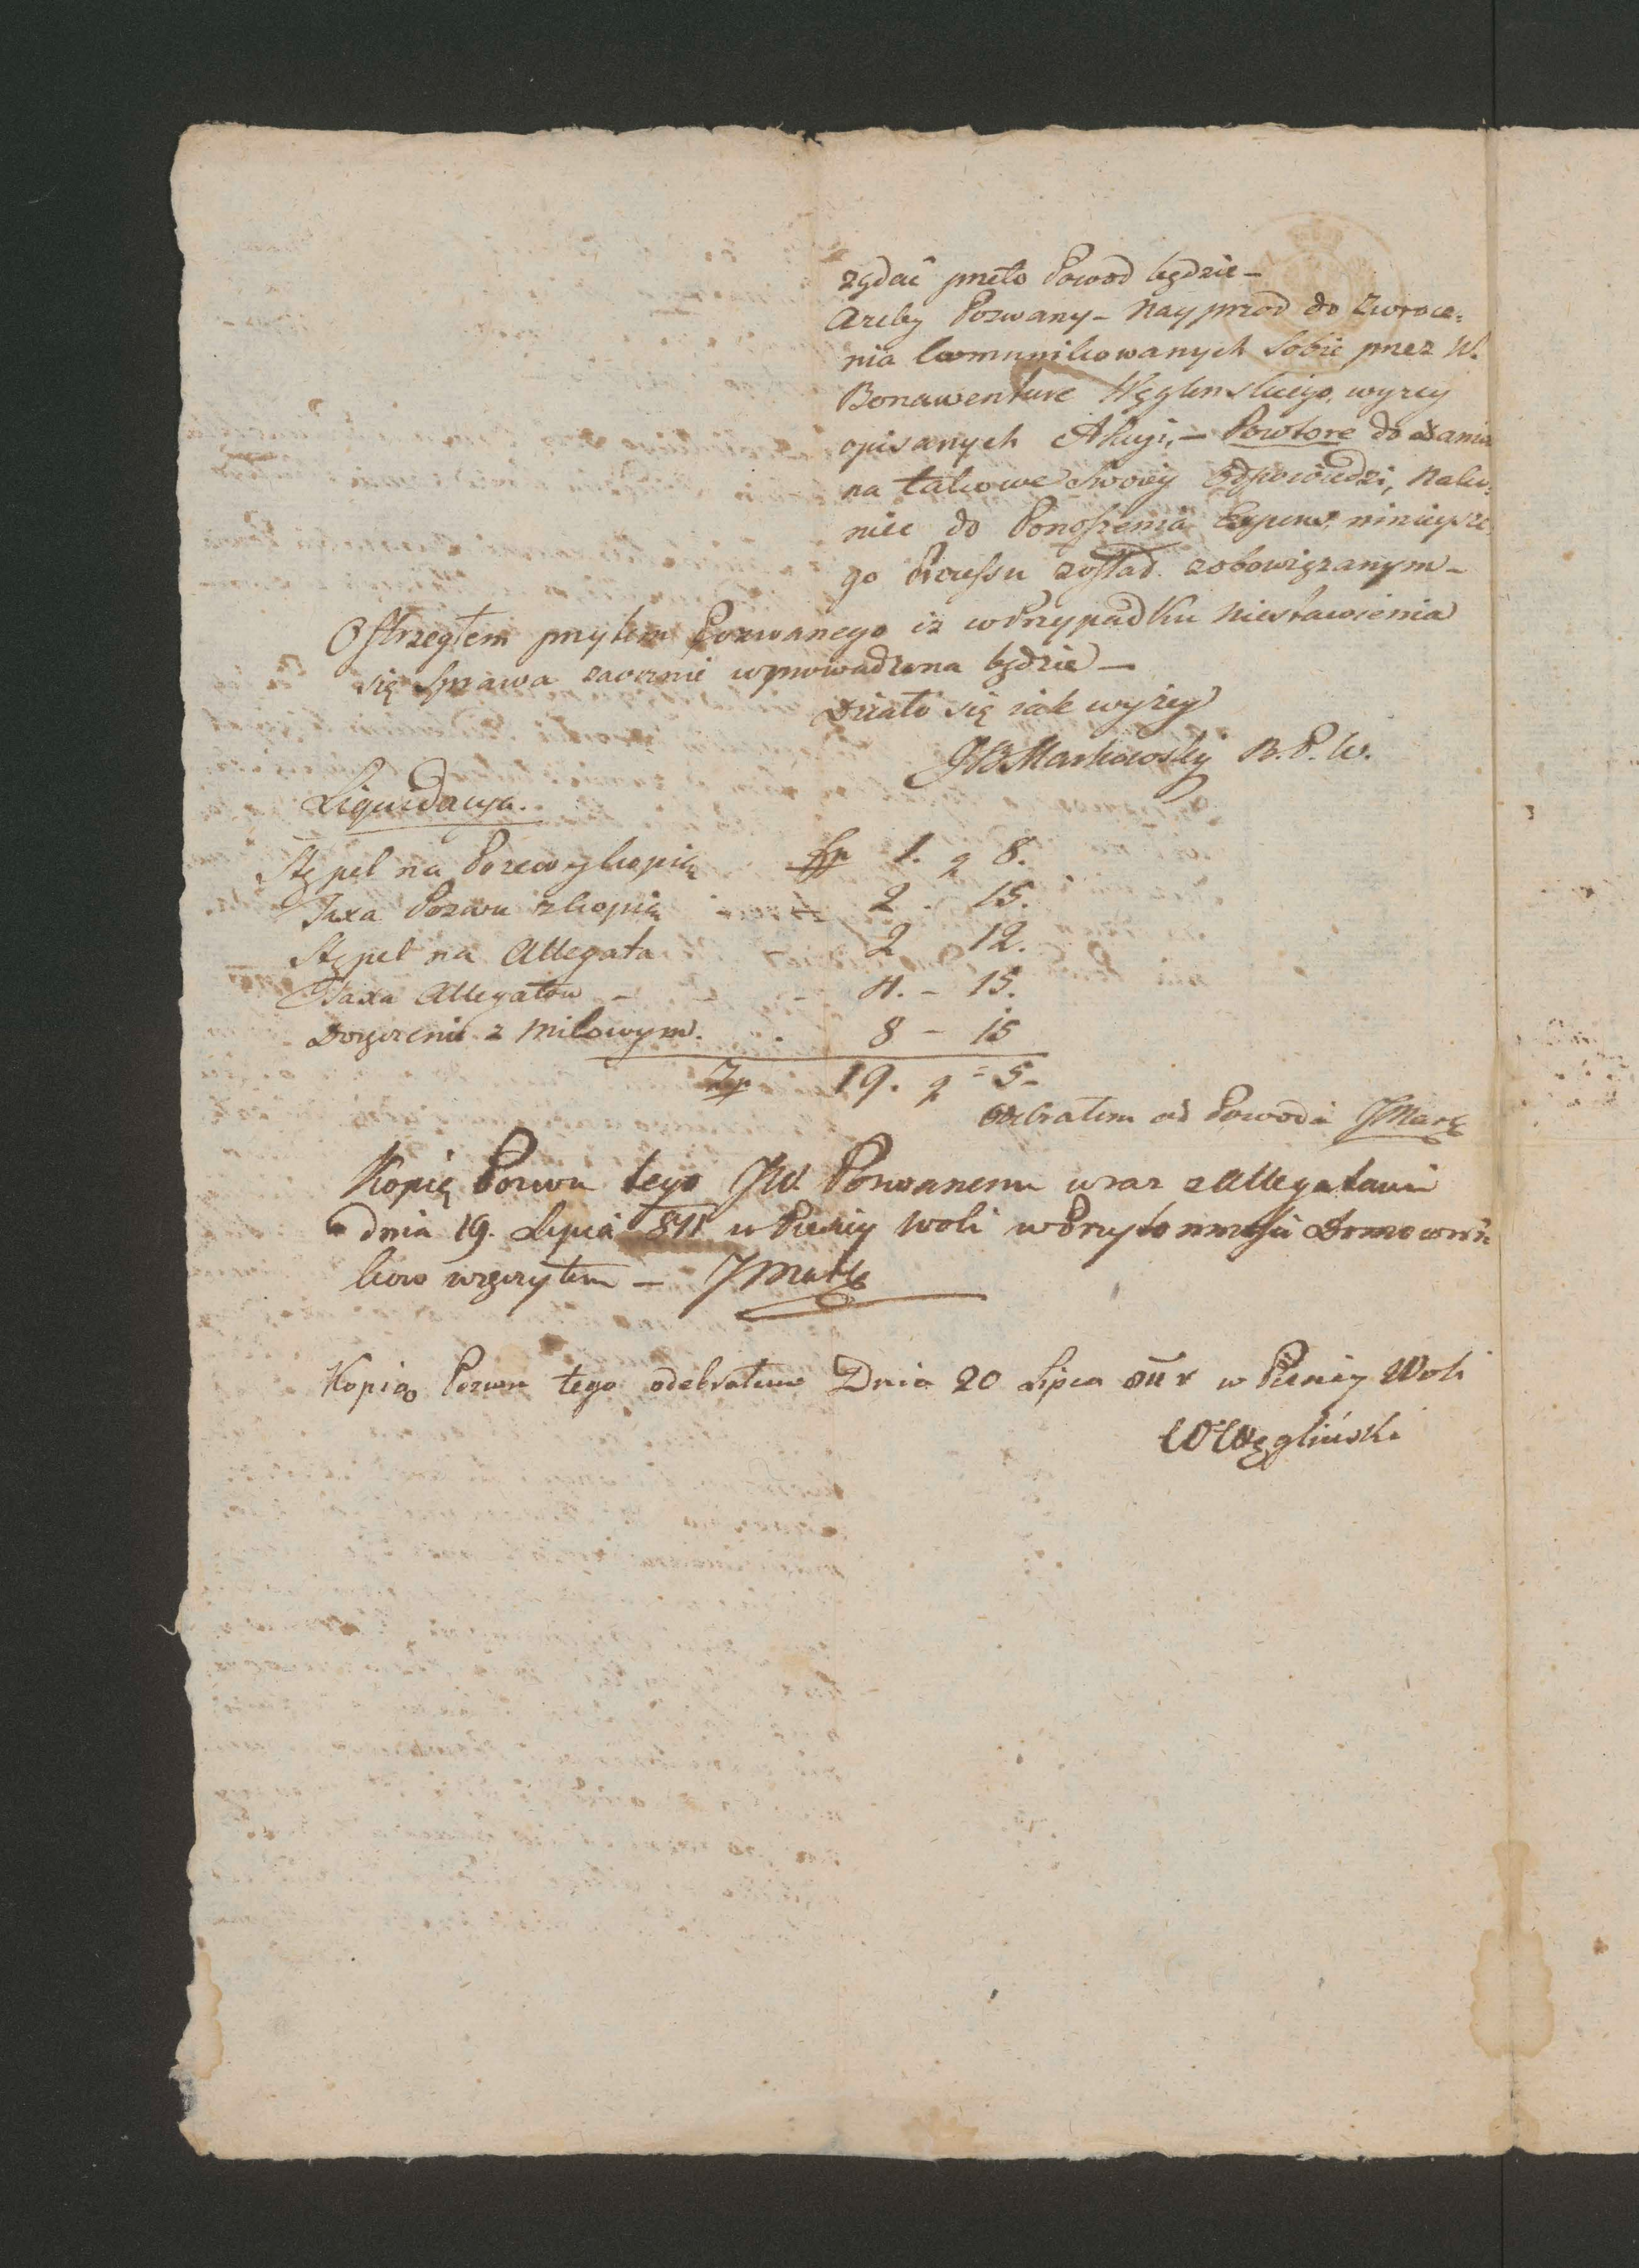 żądać przeto Powod będzie –
Azeby Pozwany – Nayprzod do Zwroce=
nia kommunikowanych Sobie przez W.
Bonawenture Węglinskiego, wyzey
opisanych Akcyi, – Powtore do dania
na takowe Swoiey Odpowiedzi, Nako=
niec do Ponoszenia Expens, ninieysze=
go Processu został zobowiązanym –
Ostrzegłem przytem Pozwanego iż w Przypadku niestawienia
się Sprawa zaocznie wprowadzona będzie –
Działo się iak wyżey
JB Markowsky B. P. W.
Liquidacya.
Stępel na Pozew y kopią Zp 1. g 8.
Taxa Pozwu z kopią 2 – 15.
Stępel na Allegata 2 12.
Taxa Allegatow – – – 4. – 15.
Doręczenie z Milowym. 8 – 15
Zp 19. g = 5 –
Odebrałem od Powoda JMark
Kopię Pozwu tego JW Pozwanemu wraz z Allegatami
dnia 19. Lipca 811 w Pieniey Woli w Przytomności Domowni=
kow wręczyłem – JMark
Kopią Pozwu tego odebrałem Dnia 20 Lipca 811 r w Pieniey Woli
W Węgliński